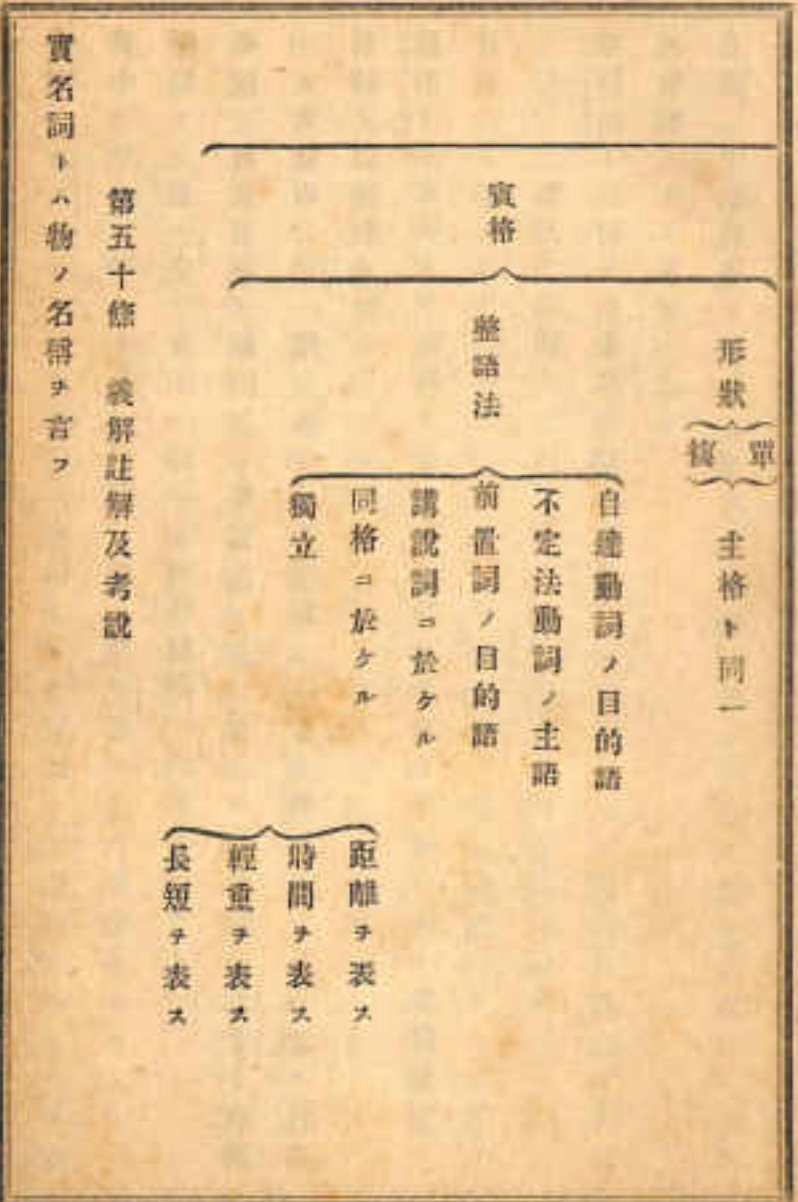 賓格
形狀
單
複
主格ト同一
整語法
自達動詞ノ目的語
不定法動詞ノ主語
前置詞ノ目的語
講說詞ニ於ケル
同格ニ於ケル
獨立
距離ヲ表ス
時間ヲ表ス
輕重ヲ表ス
長短ヲ表ス
第五十條 義解註解及考說
實名詞トハ物ノ名稱ヲ言フ